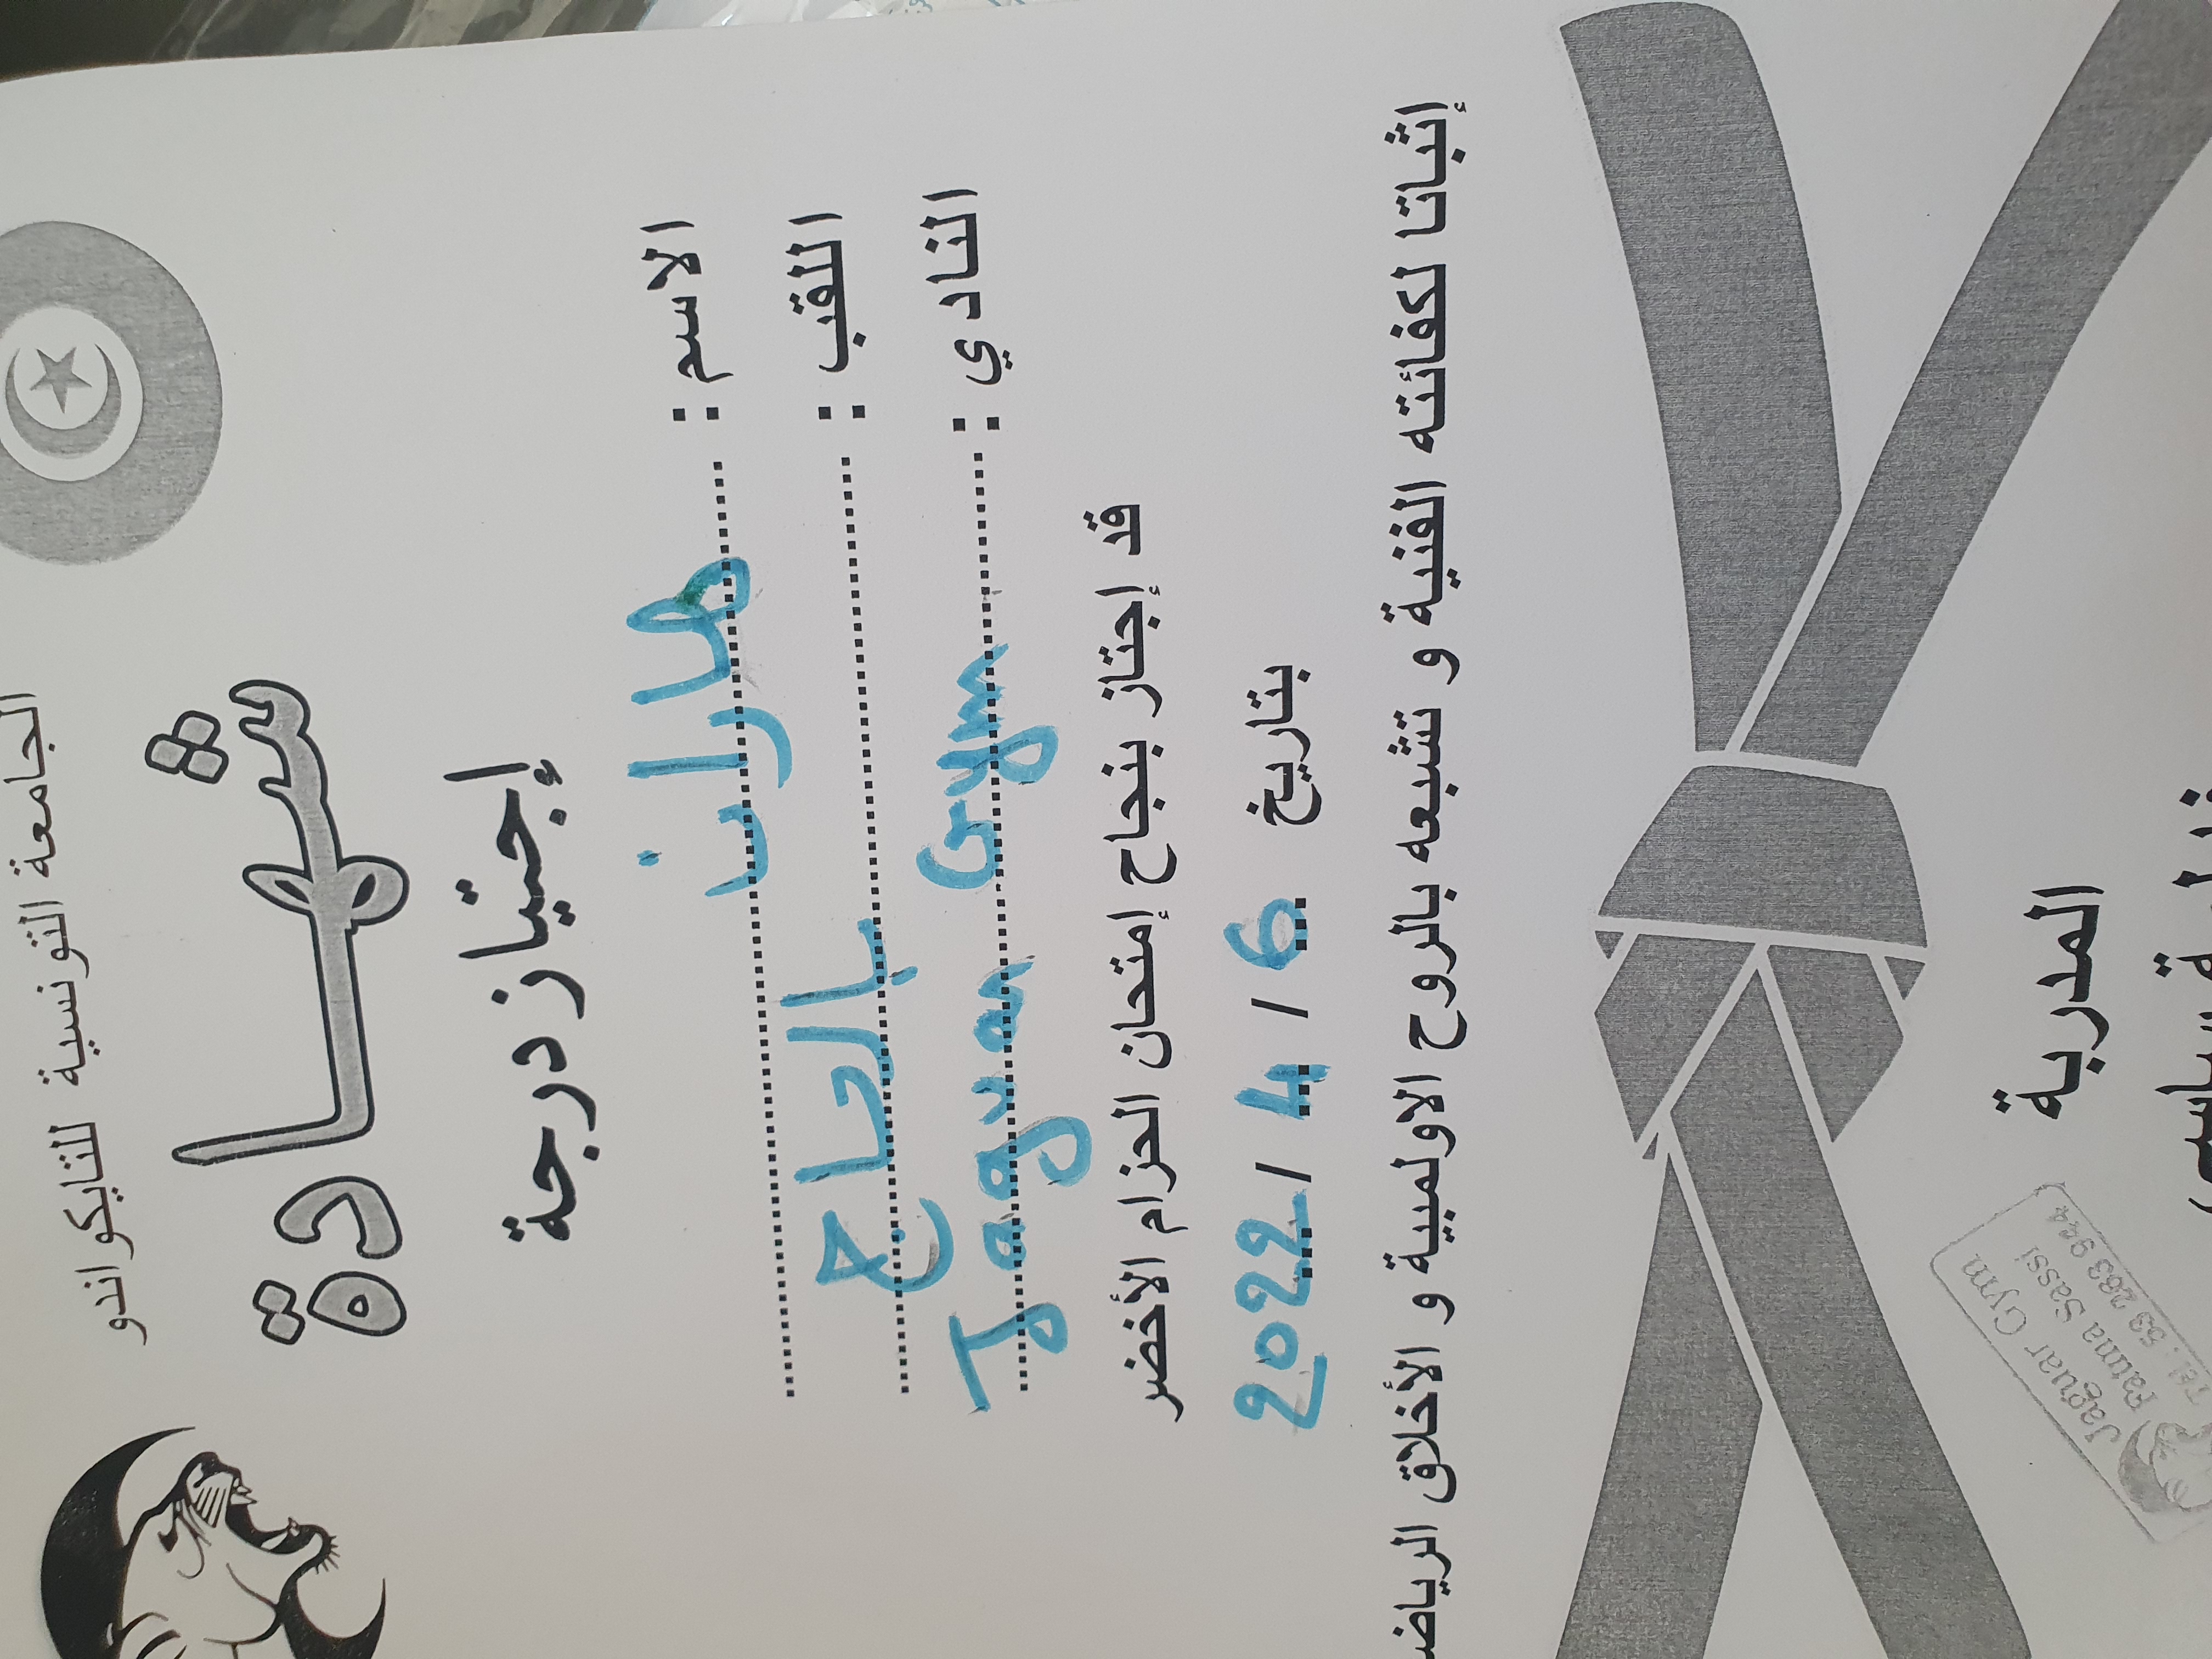 الجامعة التونسية للتايكواندو
شهادة
إجتياز درجة
الاسم : هاران
اللقب : بالحاج
النادي : Jaguar Gym
قد إجتاز بنجاح إمتحان الحزام الأخضر
بتاريخ 6 / 4 / 2022
إثباتا لكفائته الفنية و تشبعه بالروح الاولمبية و الأخلاق الرياض
المدربة
Jaguar Gym
Fatma Sassi
Tel. 53 263 944